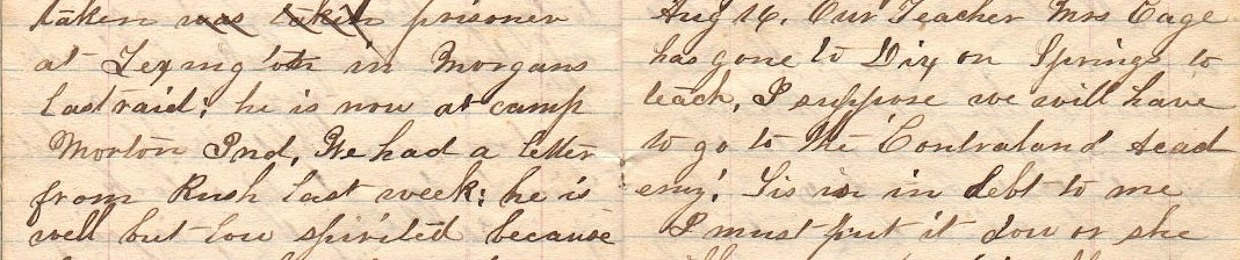 taken was taken prisoner
at Lexington in Morgans
last raid; he is now at camp
Morton Ind, We had a letter
from Rush last week; he is
well but low spirited because
Aug 16. Our Teacher Mrs Cage
has gone to Dix on Springs to
teach, I suppose we will have
to go to the Contraland Acad
emy! Sis is in debt to me
I must put it dow or she